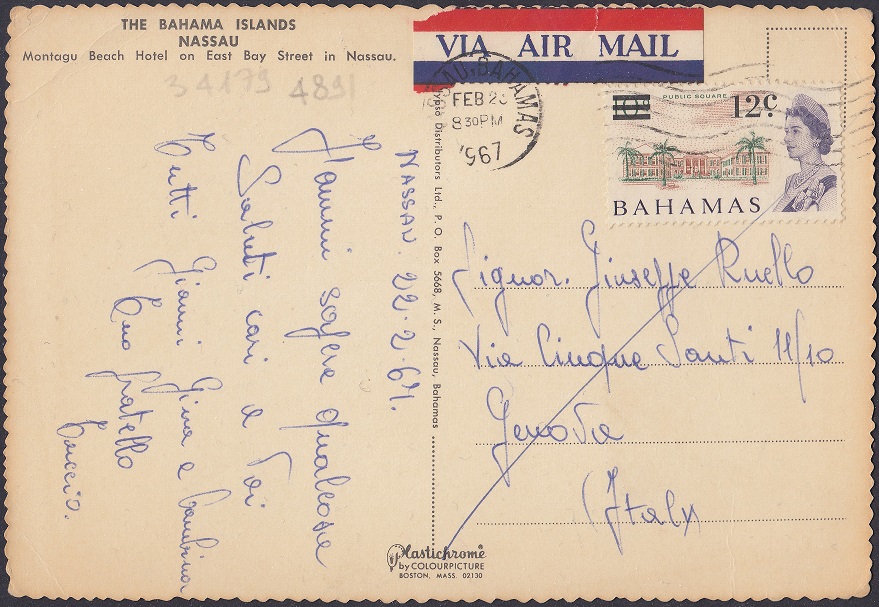 THE BAHAMA ISLANDS
NASSAU
Montagu Beach Hotel on East Bay Street in Nassau.
34179 4891
VIA AIR MAIL
NASSAU, BAHAMAS
FEB 23
830PM
'967
PUBLIC SQUARE
10d 12c
BAHAMAS
Distributors Ltd., P. O. Box 5668, M. S., Nassau, Bahamas
NASSAU. 22-2-67.
Fammi sapere qualcosa
Saluti cari a Voi
Tutti Gianni Gina e bambina
tuo fratello
Signor. Giuseppe Ruello
Via Cinque Santi 11/10
Genova
(Italy
Plastichrome
by COLOURPICTURE
BOSTON, MASS. 02130